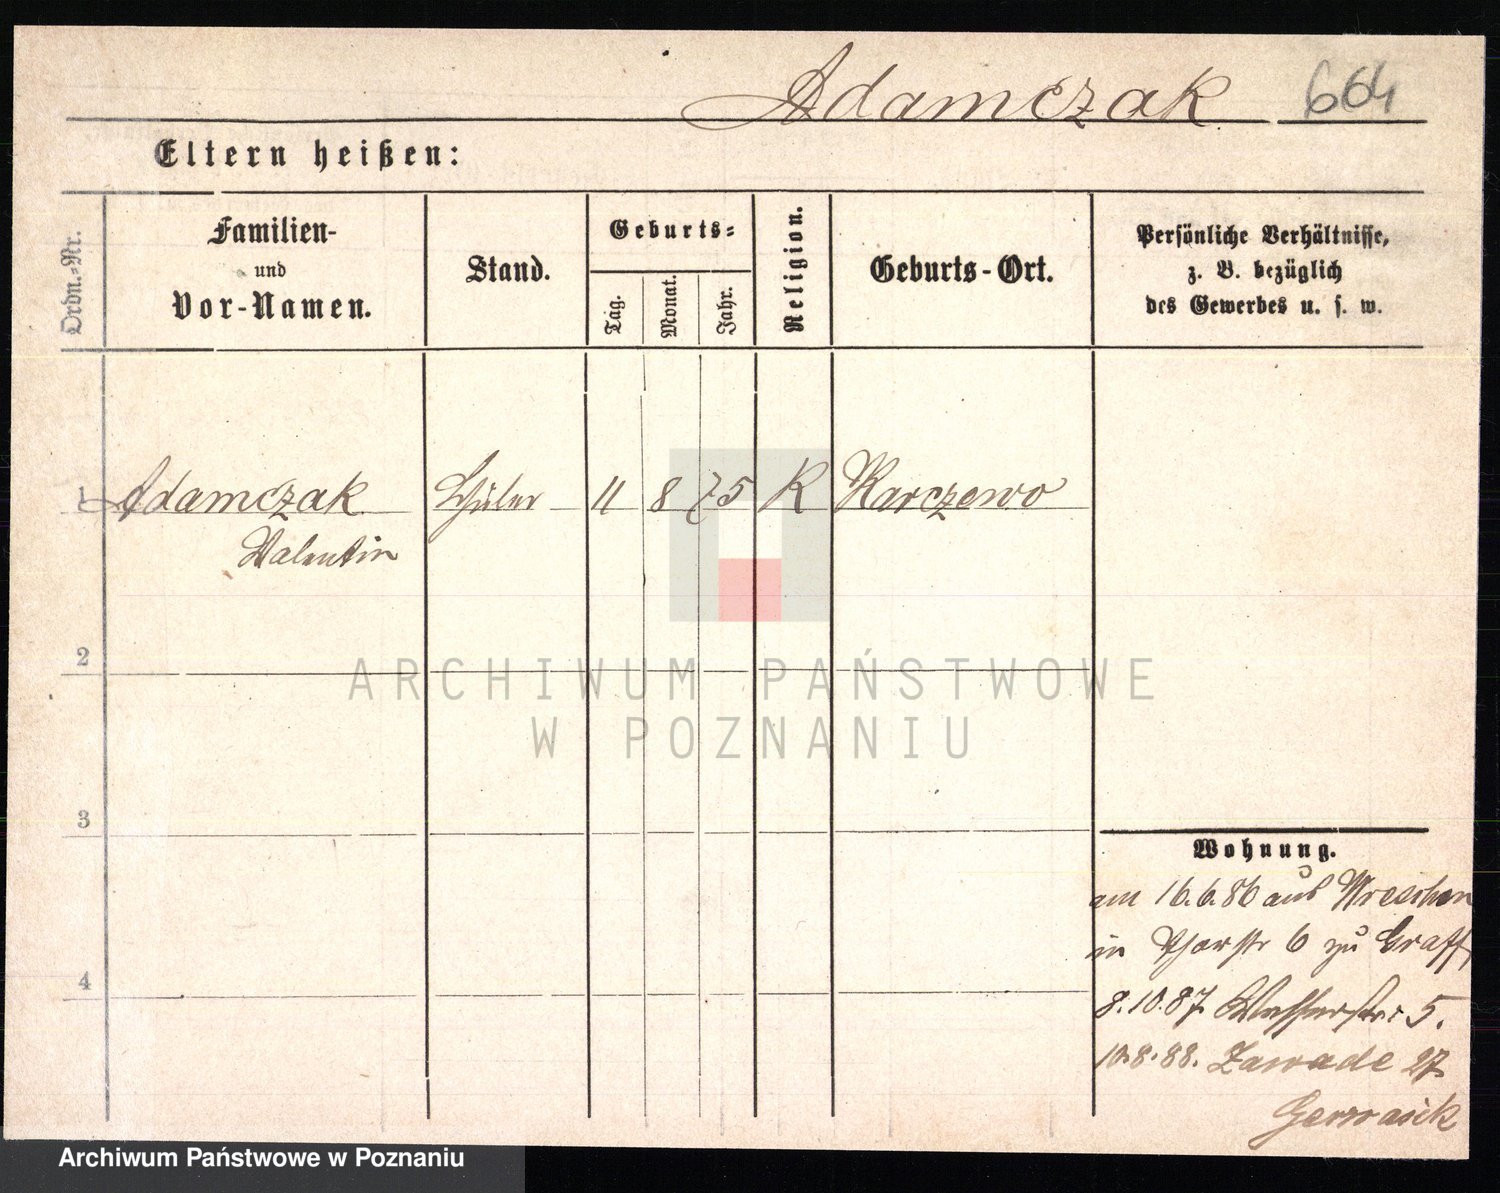 Adamczak 664
Eltern heißen:
Ordn.-Nr.
Familien-
und
Vor-Namen.
Stand.
Geburts-
Tag.
Monat.
Jahr.
Religion.
Geburts-Ort.
Persönliche Verhältnisse,
z. B. bezüglich
des Gewerbes u. s. w.
1 Adamczak Schüler 11 8 75 K Karczewo
Valentin
2
3
4
Wohnung.
am 16.6.86 aus Wreschen
in Thorstr 6 zu Graff
8.10.87 Wasserstr: 5.
10.8.88. Zawade 27
ARCHIWUM PAŃSTWOWE
W POZNANIU
Archiwum Państwowe w Poznaniu